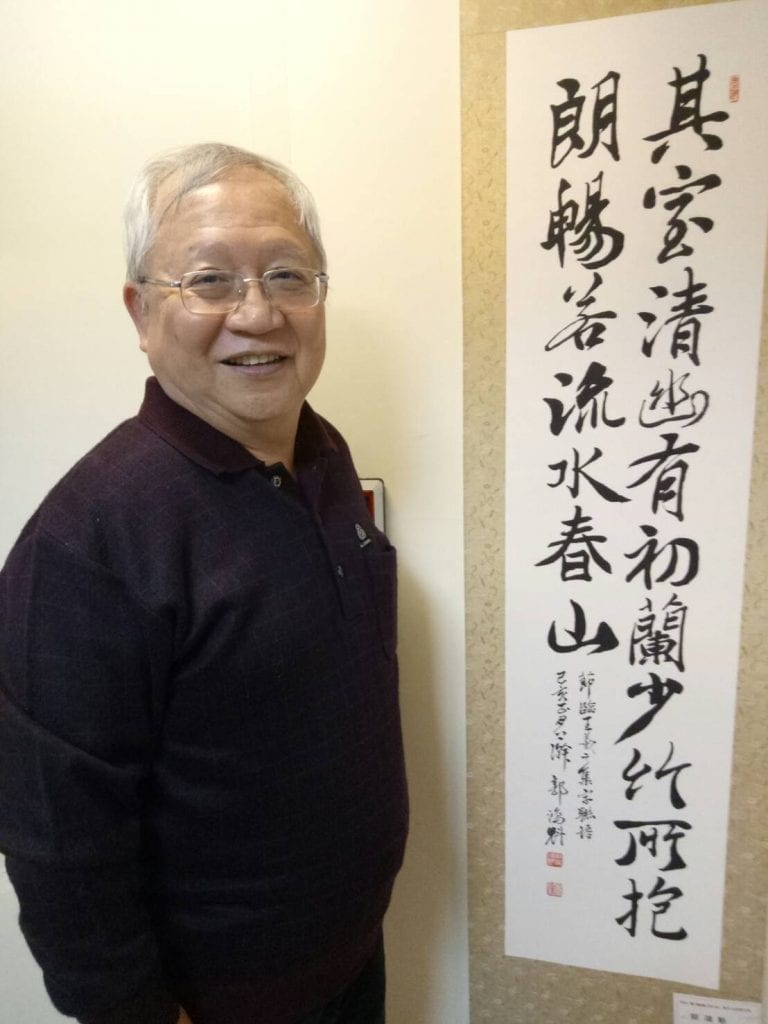 其室清幽有初蘭少竹所抱
朗暢若流水春山
節臨王羲之集字聯語
己亥正月上澣 郭